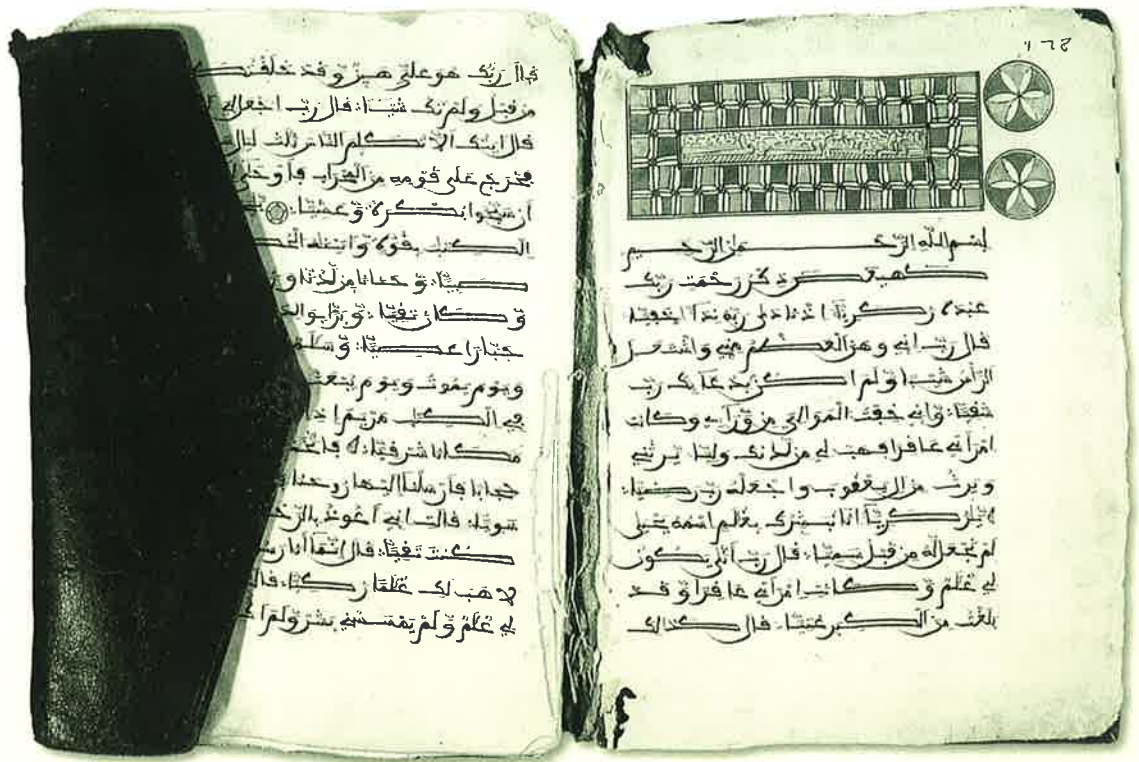 بسم الله الرحمن الرحيم
كهيعص ذكر رحمت ربك
عبده زكرياء اذ نادى ربه نداء خفيا
قال رب اني وهن العظم مني واشتعل
الرأس شيبا ولم اكن بدعائك رب
شقيا واني خفت الموالي من وراءي وكانت
امرأتي عاقرا فهب لي من لدنك وليا يرثني
ويرث من ال يعقوب واجعله رب رضيا
يزكرياء انا نبشرك بغلم اسمه يحيى
لم نجعل له من قبل سميا قال رب أنى يكون
لي غلم وكانت امرأتي عاقرا وقد
بلغت من الكبر عتيا قال كذلك
قال ربك هو علي هين وقد خلقتك
من قبل ولم تك شيئا قال رب اجعل لي
قال ايتك الا تكلم الناس ثلث ليال
فخرج على قومه من المحراب فأوحى
ان سبحوا بكرة وعشيا
الكتب بقوة واتينه
صبيا وحنانا من لدنا
وكان تقيا وبرا بو
جبارا عصيا وسلم
ويوم يموت ويوم يبعث
في الكتب مريم اذ
مكانا شرقيا
حجابا فأرسلنا اليها روحنا
سويا قالت اني أعوذ بالرحمن
كنت تقيا قال انما أنا رسول
لاهب لك غلما زكيا قالت
لي غلم ولم يمسسني بشر ولم